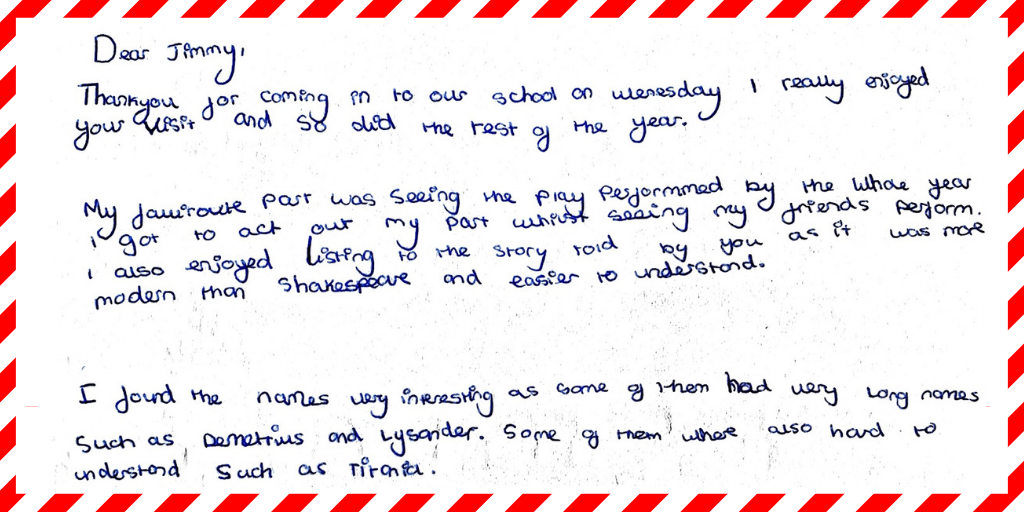 Dear Jimmy,
Thankyou for coming in to our school on wenesday I really enjoyed
your visit and so did the rest of the year.
My fawiroute part was seeing the play performmed by the whole year
i got to act out my part whilst seeing my friends perform.
i also enjoyed listing to the story told by you as it was more
modern than Shakespeare and easier to understand.
I found the names very interesting as some of them had very long names
Such as Demetrius and Lysander. Some of them where also hard to
understand Such as Titania.